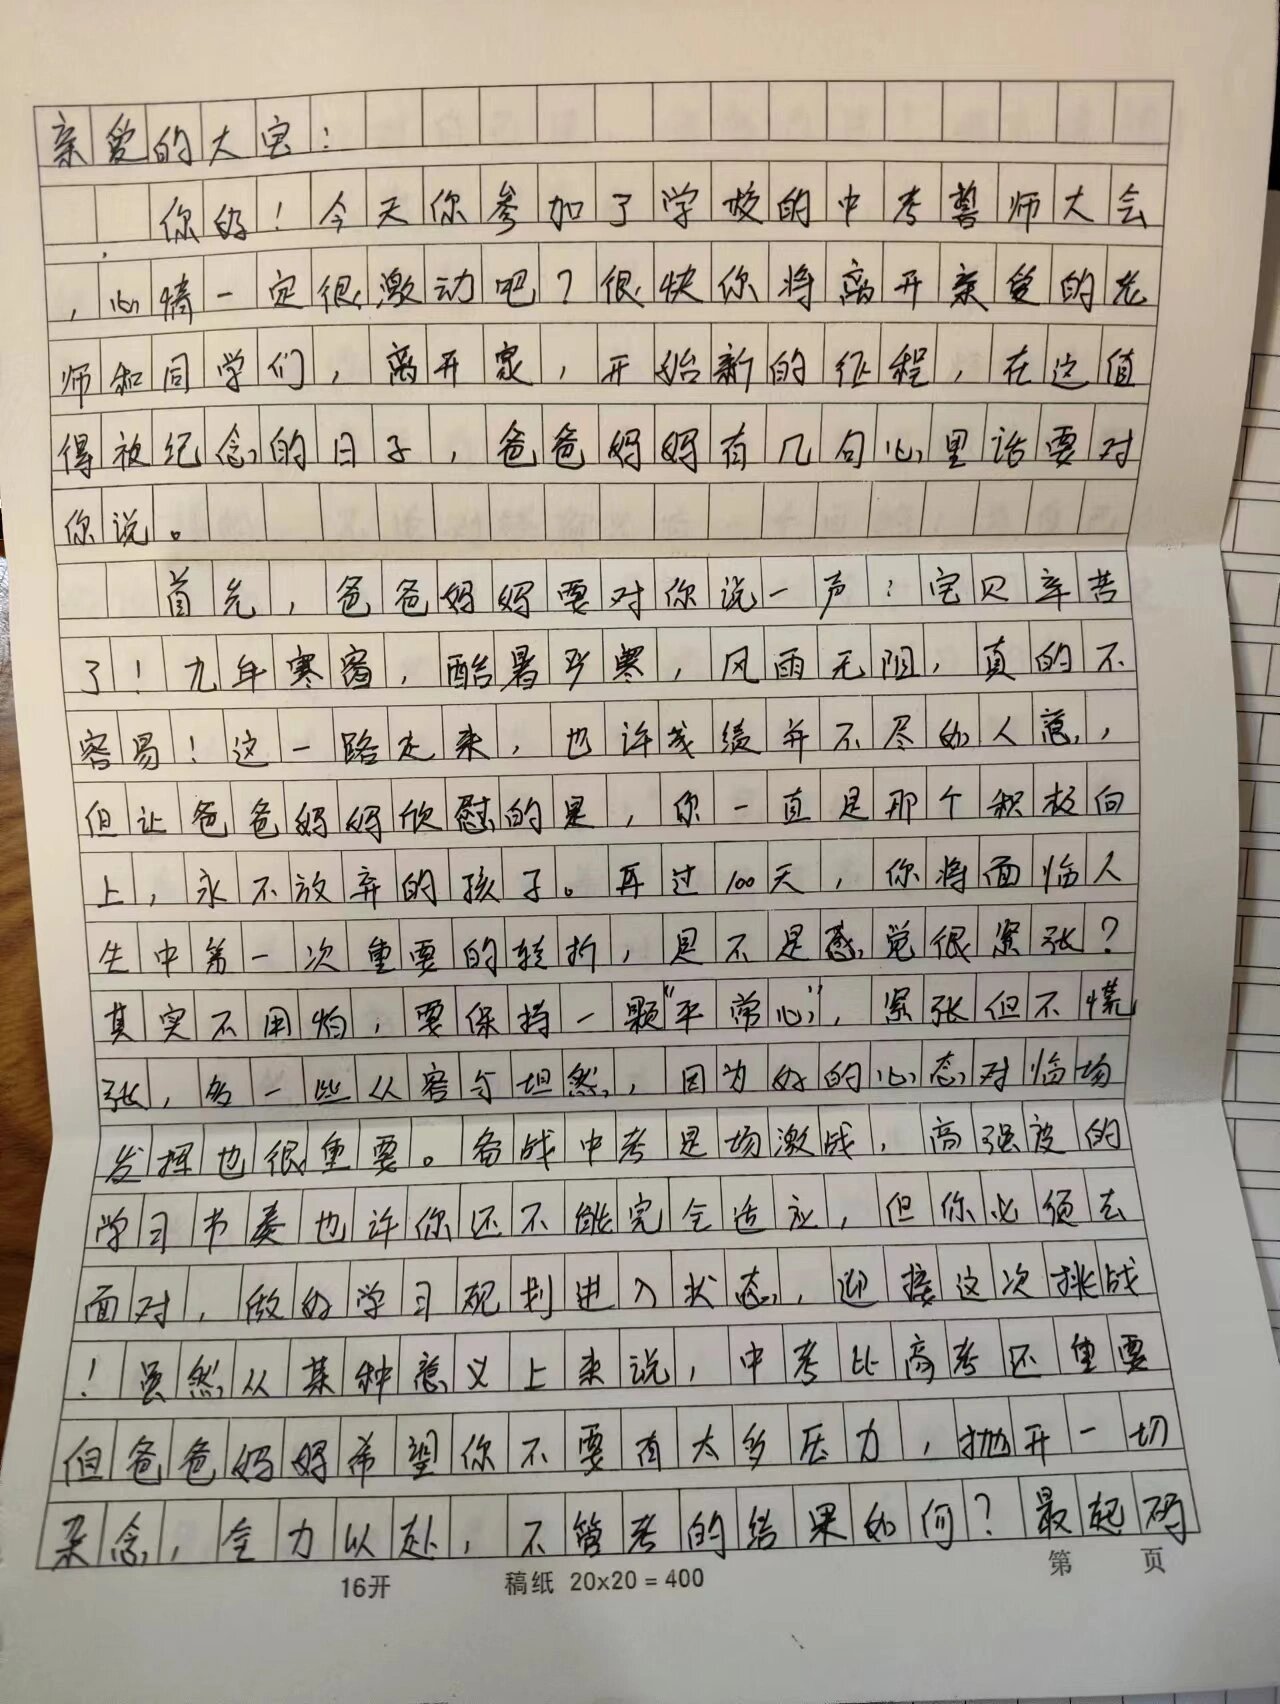 亲爱的大宝：
你好！今天你参加了学校的中考誓师大会
，心情一定很激动吧？很快你将离开亲爱的老
师和同学们，离开家，开始新的征程，在这值
得被纪念的日子，爸爸妈妈有几句心里话要对
你说。
首先，爸爸妈妈要对你说一声：宝贝辛苦
了！九年寒窗，酷暑严寒，风雨无阻，真的不
容易！这一路走来，也许成绩并不尽如人意，
但让爸爸妈妈欣慰的是，你一直是那个积极向
上，永不放弃的孩子。再过100天，你将面临人
生中第一次重要的转折，是不是感觉很紧张？
其实不用怕，要保持一颗“平常心”，紧张但不慌
张，多一些从容与坦然，因为好的心态对临场
发挥也很重要。备战中考是场激战，高强度的
学习节奏也许你还不能完全适应，但你必须去
面对，做好学习规划进入状态，迎接这次挑战
！虽然从某种意义上来说，中考比高考还重要
但爸爸妈妈希望你不要有太多压力，抛开一切
杂念，全力以赴，不管考的结果如何？最起码
16开 稿纸 20x20=400 第 页